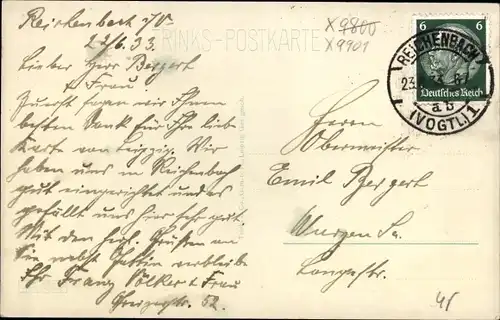 Reichenbach i/V.
22/6. 33.
Lieber Herr Bergert
& Frau!
Zuerst sagen wir Ihnen
besten Dank für Ihre liebe
Karte von Leipzig. Wir
haben uns in Reichenbach
gut eingerichtet und es
gefällt uns hier sehr gut.
Mit den herzl. Grüßen an
Sie nebst Gattin verbleibe
Ihr Franz Völker & Frau
Greizerstr. 52.
TRINKS-POSTKARTE
X 9800
X 9901
6 6
Deutsches Reich
REICHENBACH
23.
a b
(VOGTL.) 1
Herrn
Obermeister
Emil Bergert
Wurzen Sa.
Langestr.
45